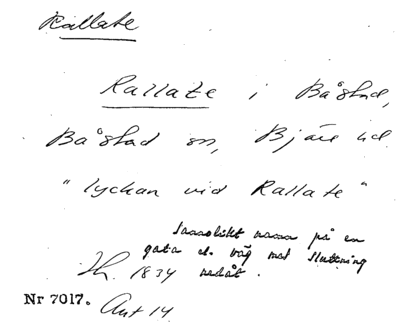 Rallate
Rallate i Båstad,
Båstad sn, Bjäre hd.
"lyckan vid Rallate"
Sannolikt namn på en
gata el. väg med sluttning
Jh. 1834 nedåt.
Nr 7017. Ant 14